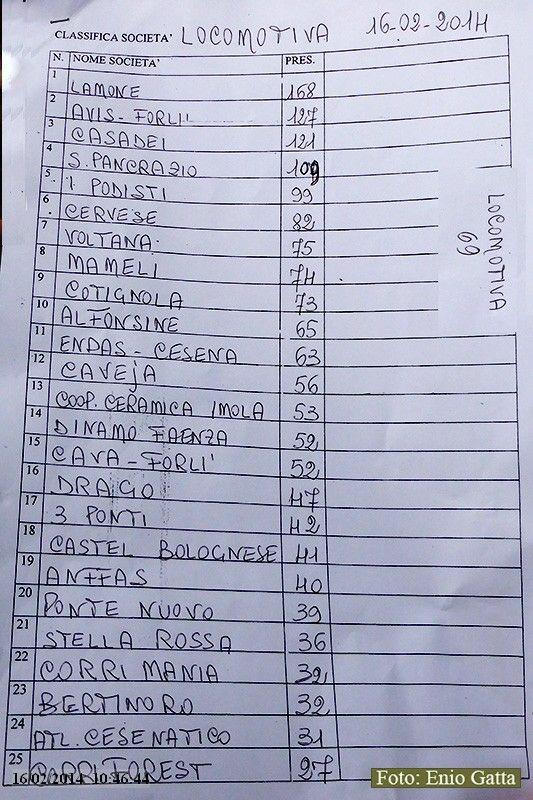 CLASSIFICA SOCIETA' LOCOMOTIVA 16-02-2014
N. NOME SOCIETA' PRES.
1 LAMONE 168
2 AVIS-FORLI' 127
3 CASADEI 121
4 S.PANCRAZIO 109
5 I PODISTI 99
6 CERVESE 82
7 VOLTANA 75
8 MAMELI 74
9 COTIGNOLA 73
10 ALFONSINE 65
11 ENDAS-CESENA 63
12 CAVEJA 56
13 COOP. CERAMICA IMOLA 53
14 DINAMO FAENZA 52
15 CAVA-FORLI' 52
16 DRAGO 47
17 3 PONTI 42
18 CASTEL BOLOGNESE 41
19 ANFFAS 40
20 PONTE NUOVO 39
21 STELLA ROSSA 36
22 CORRI MANIA 32
23 BERTINORO 32
24 ATL. CESENATICO 31
25 CORRIFOREST 27
LOCOMOTIVA
69
16/02/2014 10:46:44
Foto: Enio Gatta